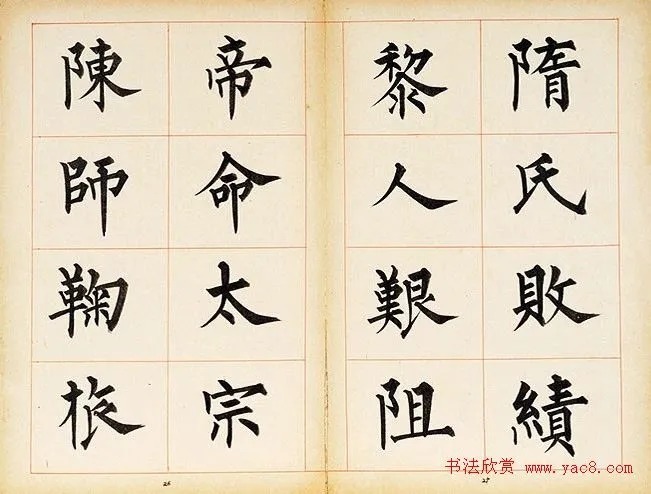 隋氏敗績
黎人艱阻
帝命太宗
陳師鞠旅
26
25
书法欣赏 www.yac8.com